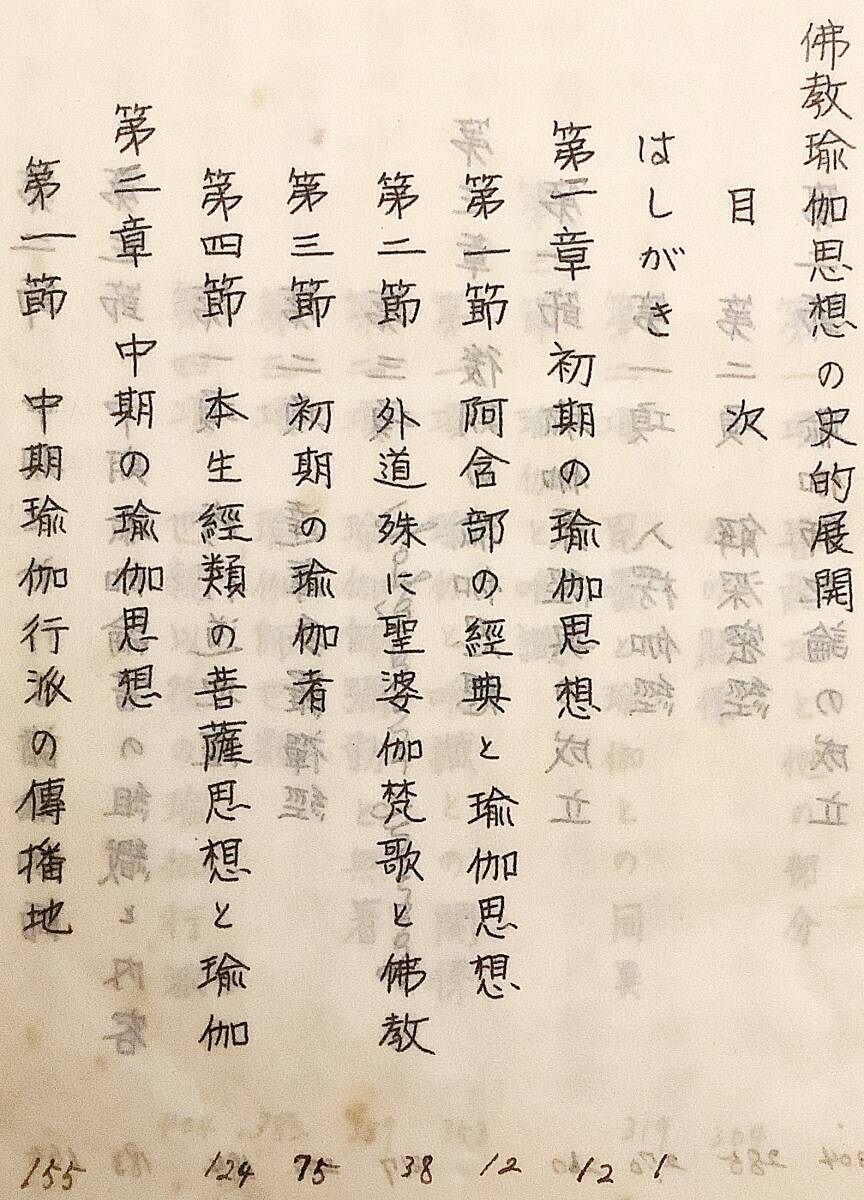 佛教瑜伽思想の史的展開
目次
はしがき 1
第二章 初期の瑜伽思想 12
第一節 阿含部の經典と瑜伽思想 12
第二節 外道殊に聖婆伽梵歌と佛教 38
第三節 初期の瑜伽者 75
第四節 本生經類の菩薩思想と瑜伽 124
第三章 中期の瑜伽思想
第一節 中期瑜伽行派の傳播地 155